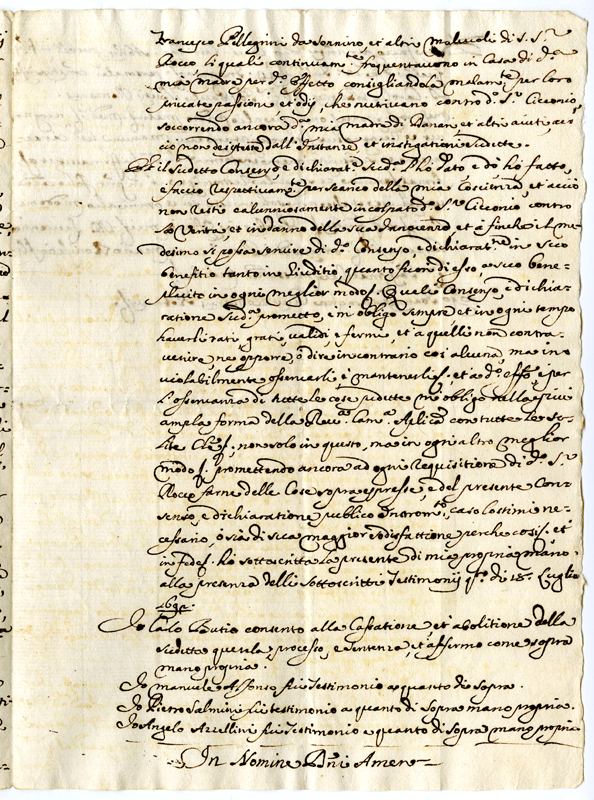 Francesco Pellegrini da Sonnino, et altri malevoli di d.° S.r
Rocco li quali continuam.te frequentavono in Casa di d.a
mia madre per d.° effetto consigliandola malam.te per loro
private passioni, et odij, che nutrivano contro d.° S.r Cicconio,
soccorrendo ancora d.a mia madre di danari, et altri aiuti, ac-
ciò non desistesse dall'Instanze, et instigationi sudette.
Et il sudetto Consenso, e dichiarat.e sud.a l'hò dato, e dò, hò fatto,
e faccio respettivam.te per scarico della mia Coscienza, et acciò
non resti calunniosamente incolpato d.° S.r Ciconio contro
la verità et in danno della sua Innocenza, et à fine che il me-
desimo si possa servire di d.° Consenso, e dichiarat.ne in suo
benefitio tanto in Giuditio, quanto fuori di esso, a suo bene-
placito in ogni meglior modo. Quale Consenso, e dichia-
ratione sud.a prometto, e m'obligo sempre, et in ogni tempo
haverli rati, grati, validi, e fermi, et à quelli non contra-
venire ne opporre, ò dire in contrario cosa alcuna, ma in-
violabilmente osservarli, e mantenerli, et à d.° eff.o e per
l'osservanza di tutte le cose sudette m'obligo nella più
ampla forma della Rev.a Cam.a Aplica con tutte le so-
lite Cl.e, non solo in questo, ma in ogni altro meglior
modo, promettendo ancora ad ogni requisitione di d.° S.r
Rocco farne delle Cose sopra espresse, e del presente Con-
senso, e dichiaratione publico Instrom.to, caso lo stimi ne-
cessario, ò sia di sua maggior sodisfattione perche così, et
in fede hò sottoscritta la presente di mia propria mano
alla presenza delli sottoscritti Testimonij q.to dì 18 Luglio
Io Carlo Butio consento alla Cassatione, et abolitione della
sudetta querela, processo, e sentenza, et affermo come sopra
mano propria.
Io manuele Affonso fui testimonio a quanto di sopra.
Io Pietro Salmini fui testimonio a quanto di sopra mano propria.
Io Angelo Azzellini fui testimonio a quanto di sopra mano propria
In Nomine Dñi Amen